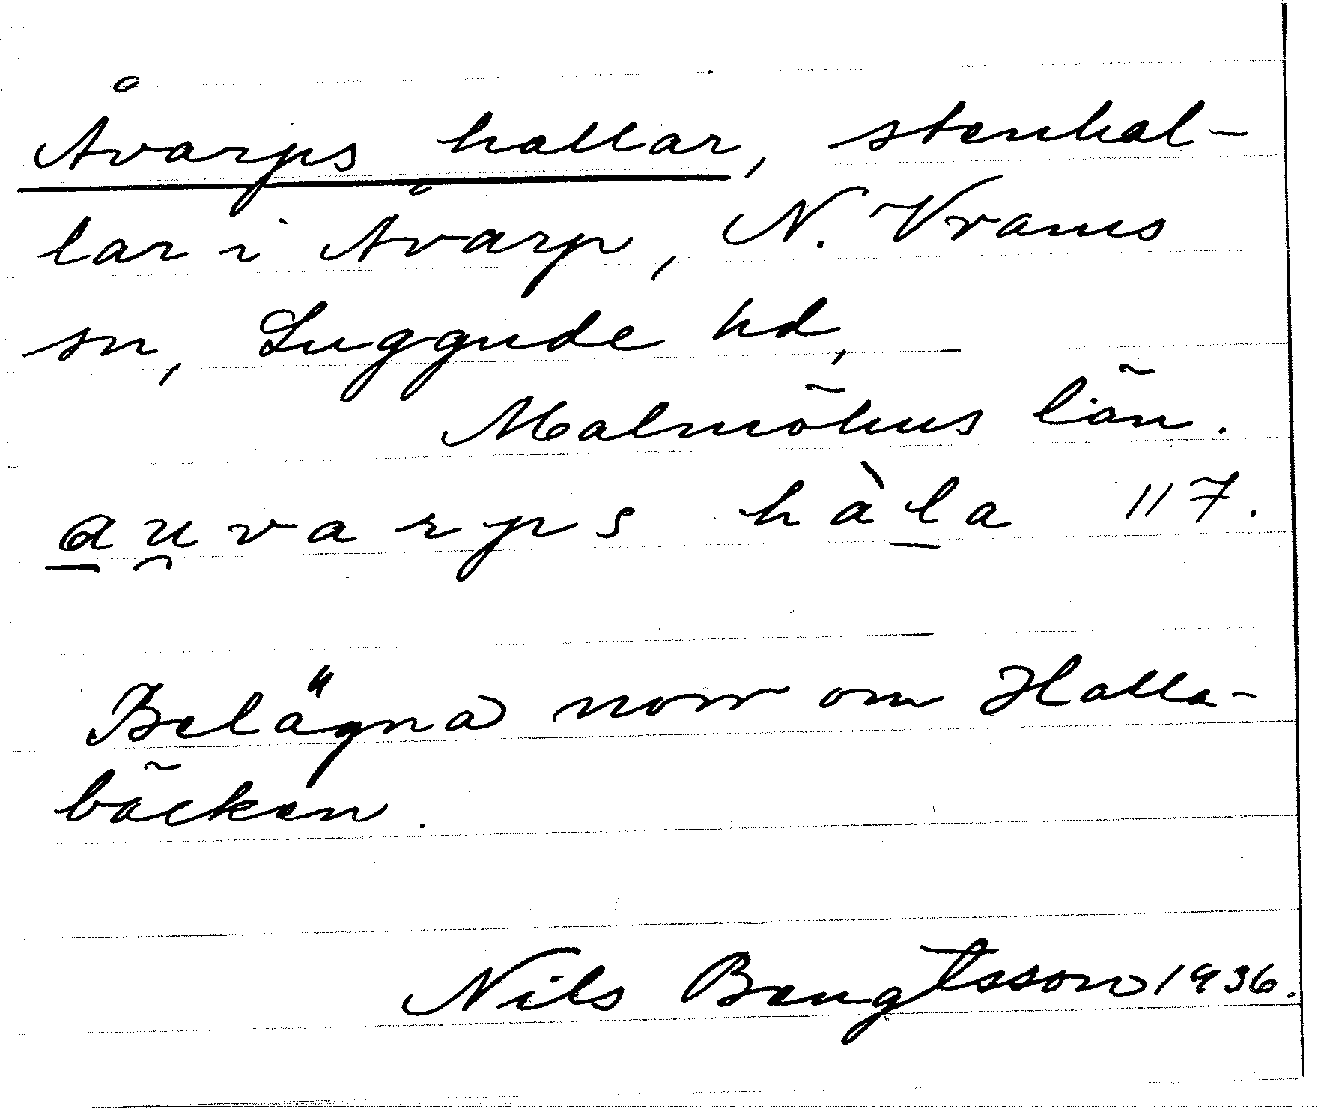 Åvarps hallar, stenhal-
lar i Åvarp, N. Vrams
sn, Luggude hd,
Malmöhus län.
au̯varps hàla 117.
Belägna norr om Halla-
bäcken.
Nils Bengtsson 1936.